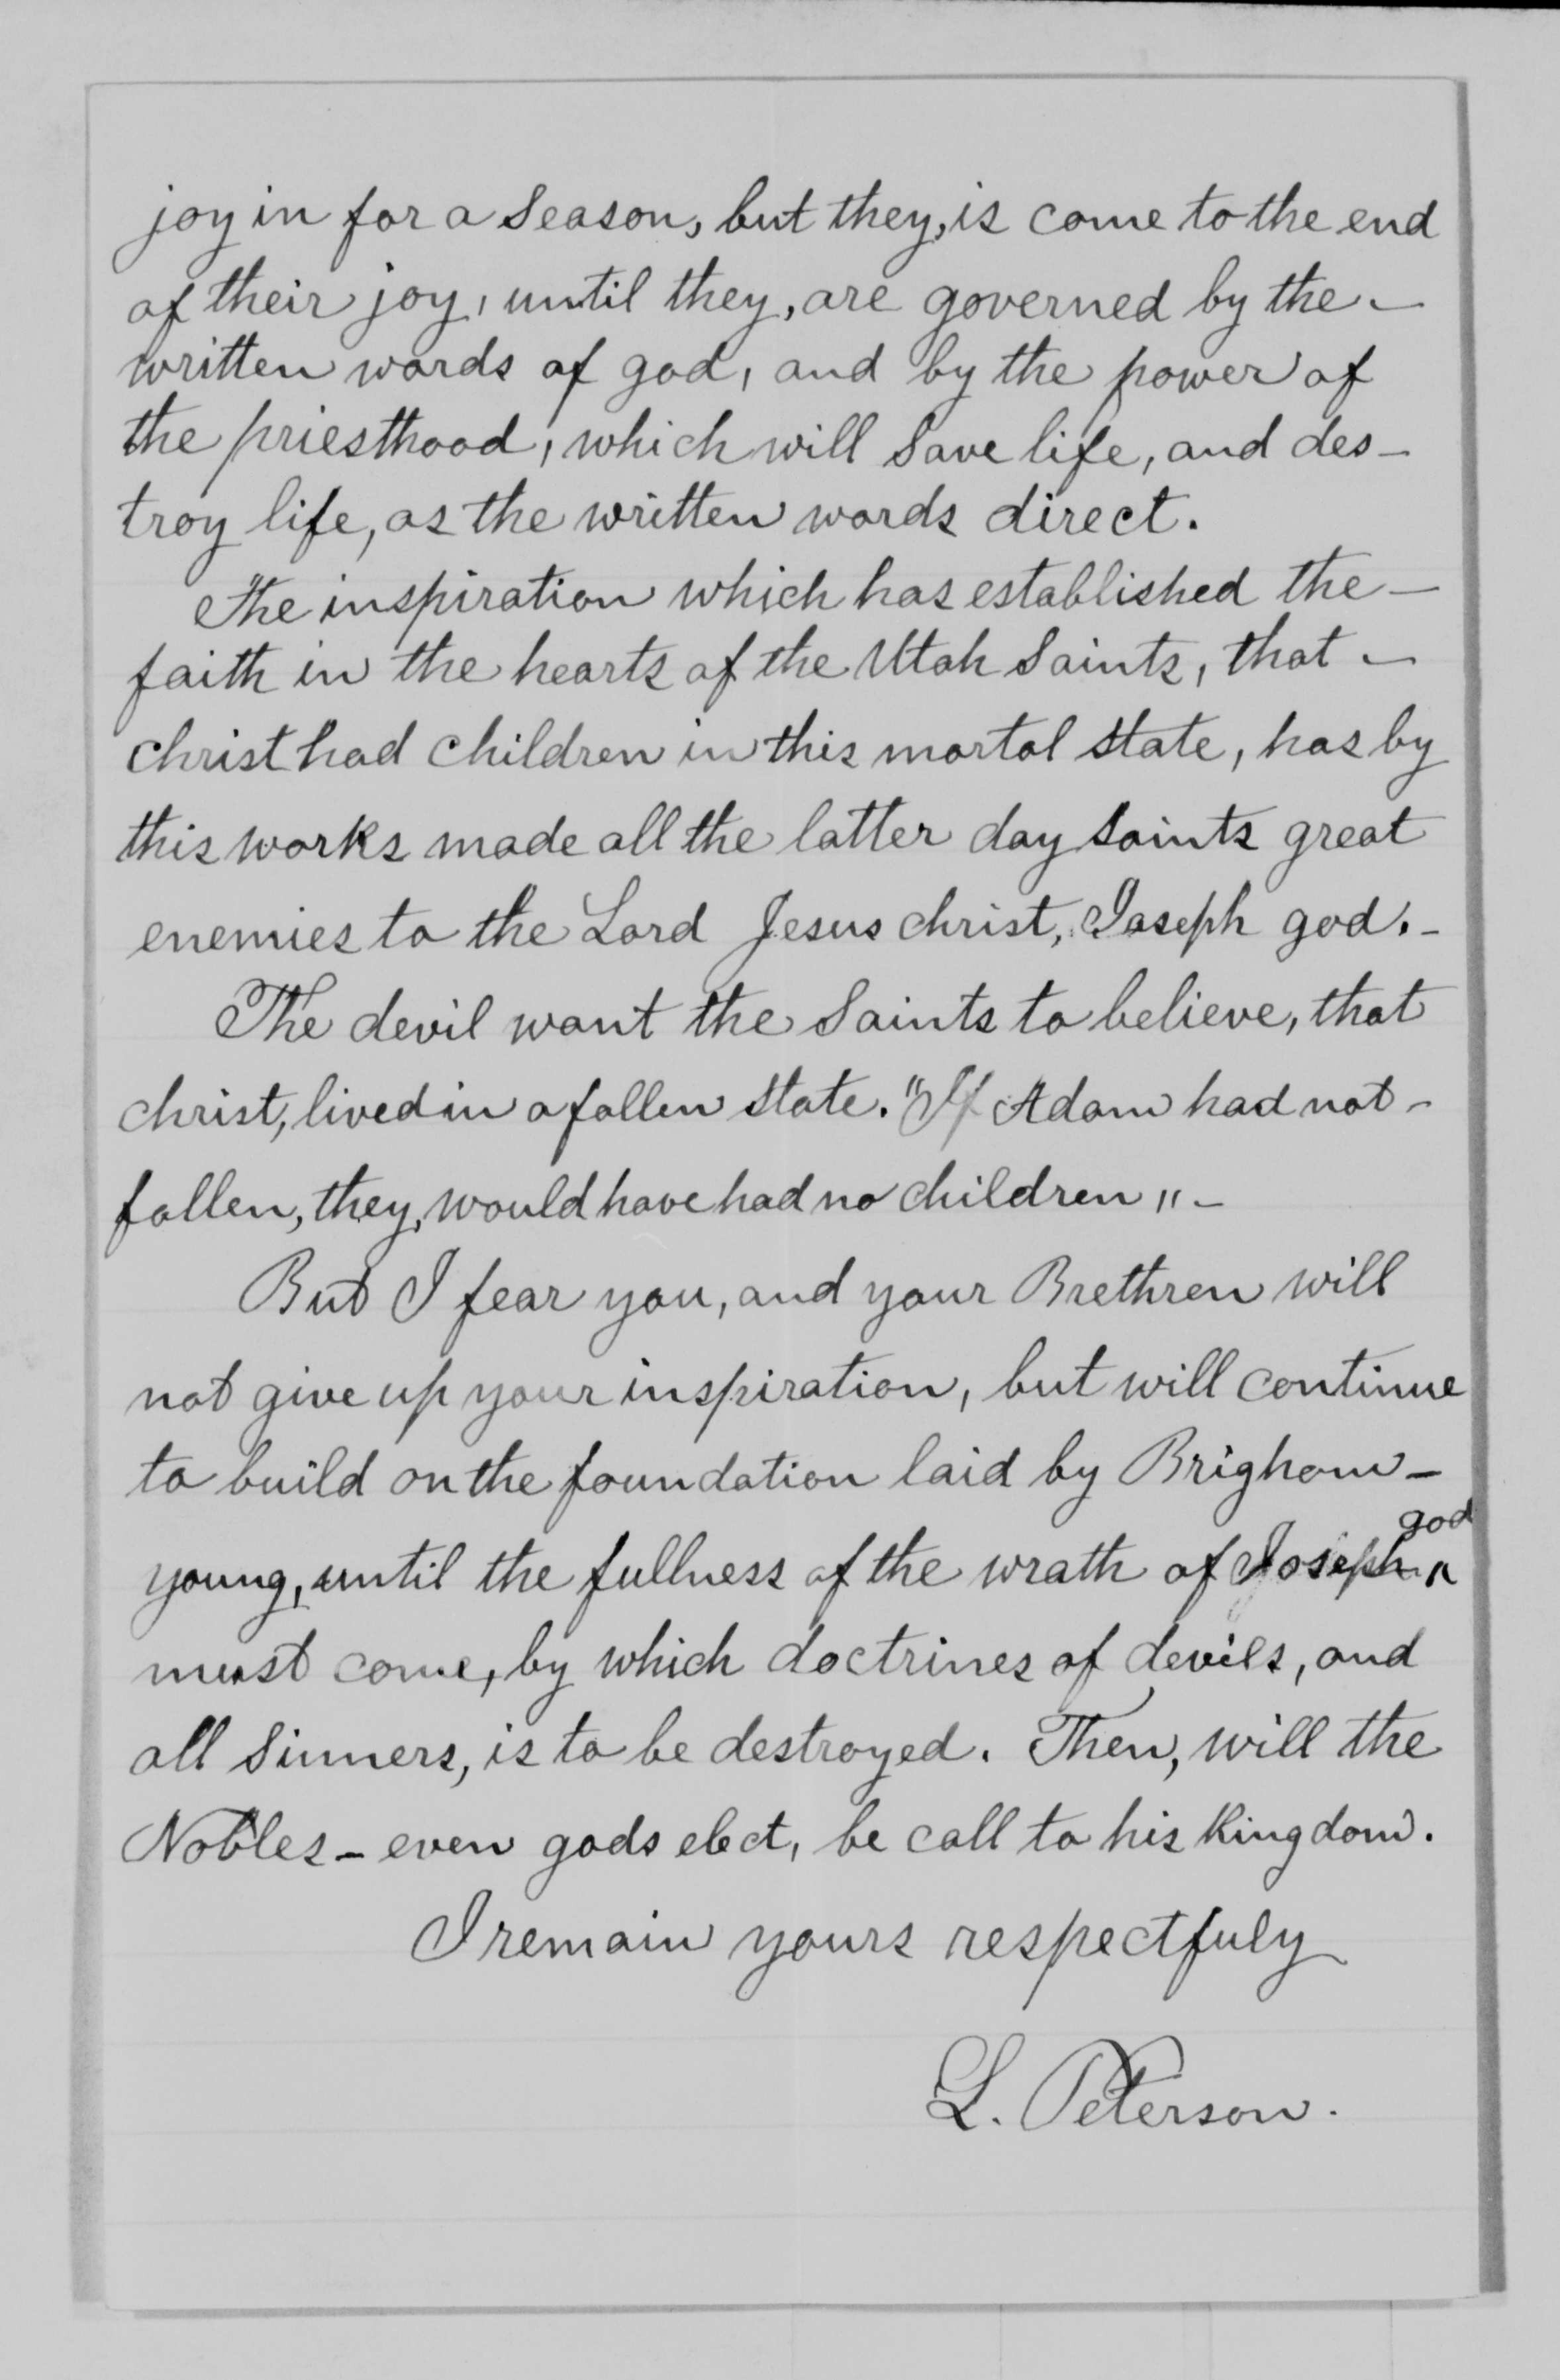 joy in for a Season, but they, is come to the end
of their joy, until they, are governed by the –
written words of god, and by the power of
the priesthood, which will Save life, and des–
troy life, as the written words direct.
The inspiration which has established the –
faith in the hearts of the Utah Saints, that –
christ had children in this mortal state, has by
this works made all the latter day Saints great
enemies to the Lord Jesus christ, Joseph god. –
The devil want the Saints to believe, that
christ, lived in a fallen state. "If Adam had not –
fallen, they, would have had no children" –
But I fear you, and your Brethren will
not give up your inspiration, but will continue
to build on the foundation laid by Brigham –
god
young, until the fullness of the wrath of Joseph ^
must come, by which doctrines of devils, and
all Sinners, is to be destroyed. Then, will the
Nobles – even gods elect, be call to his Kingdom.
I remain yours respectfuly
L. Peterson.